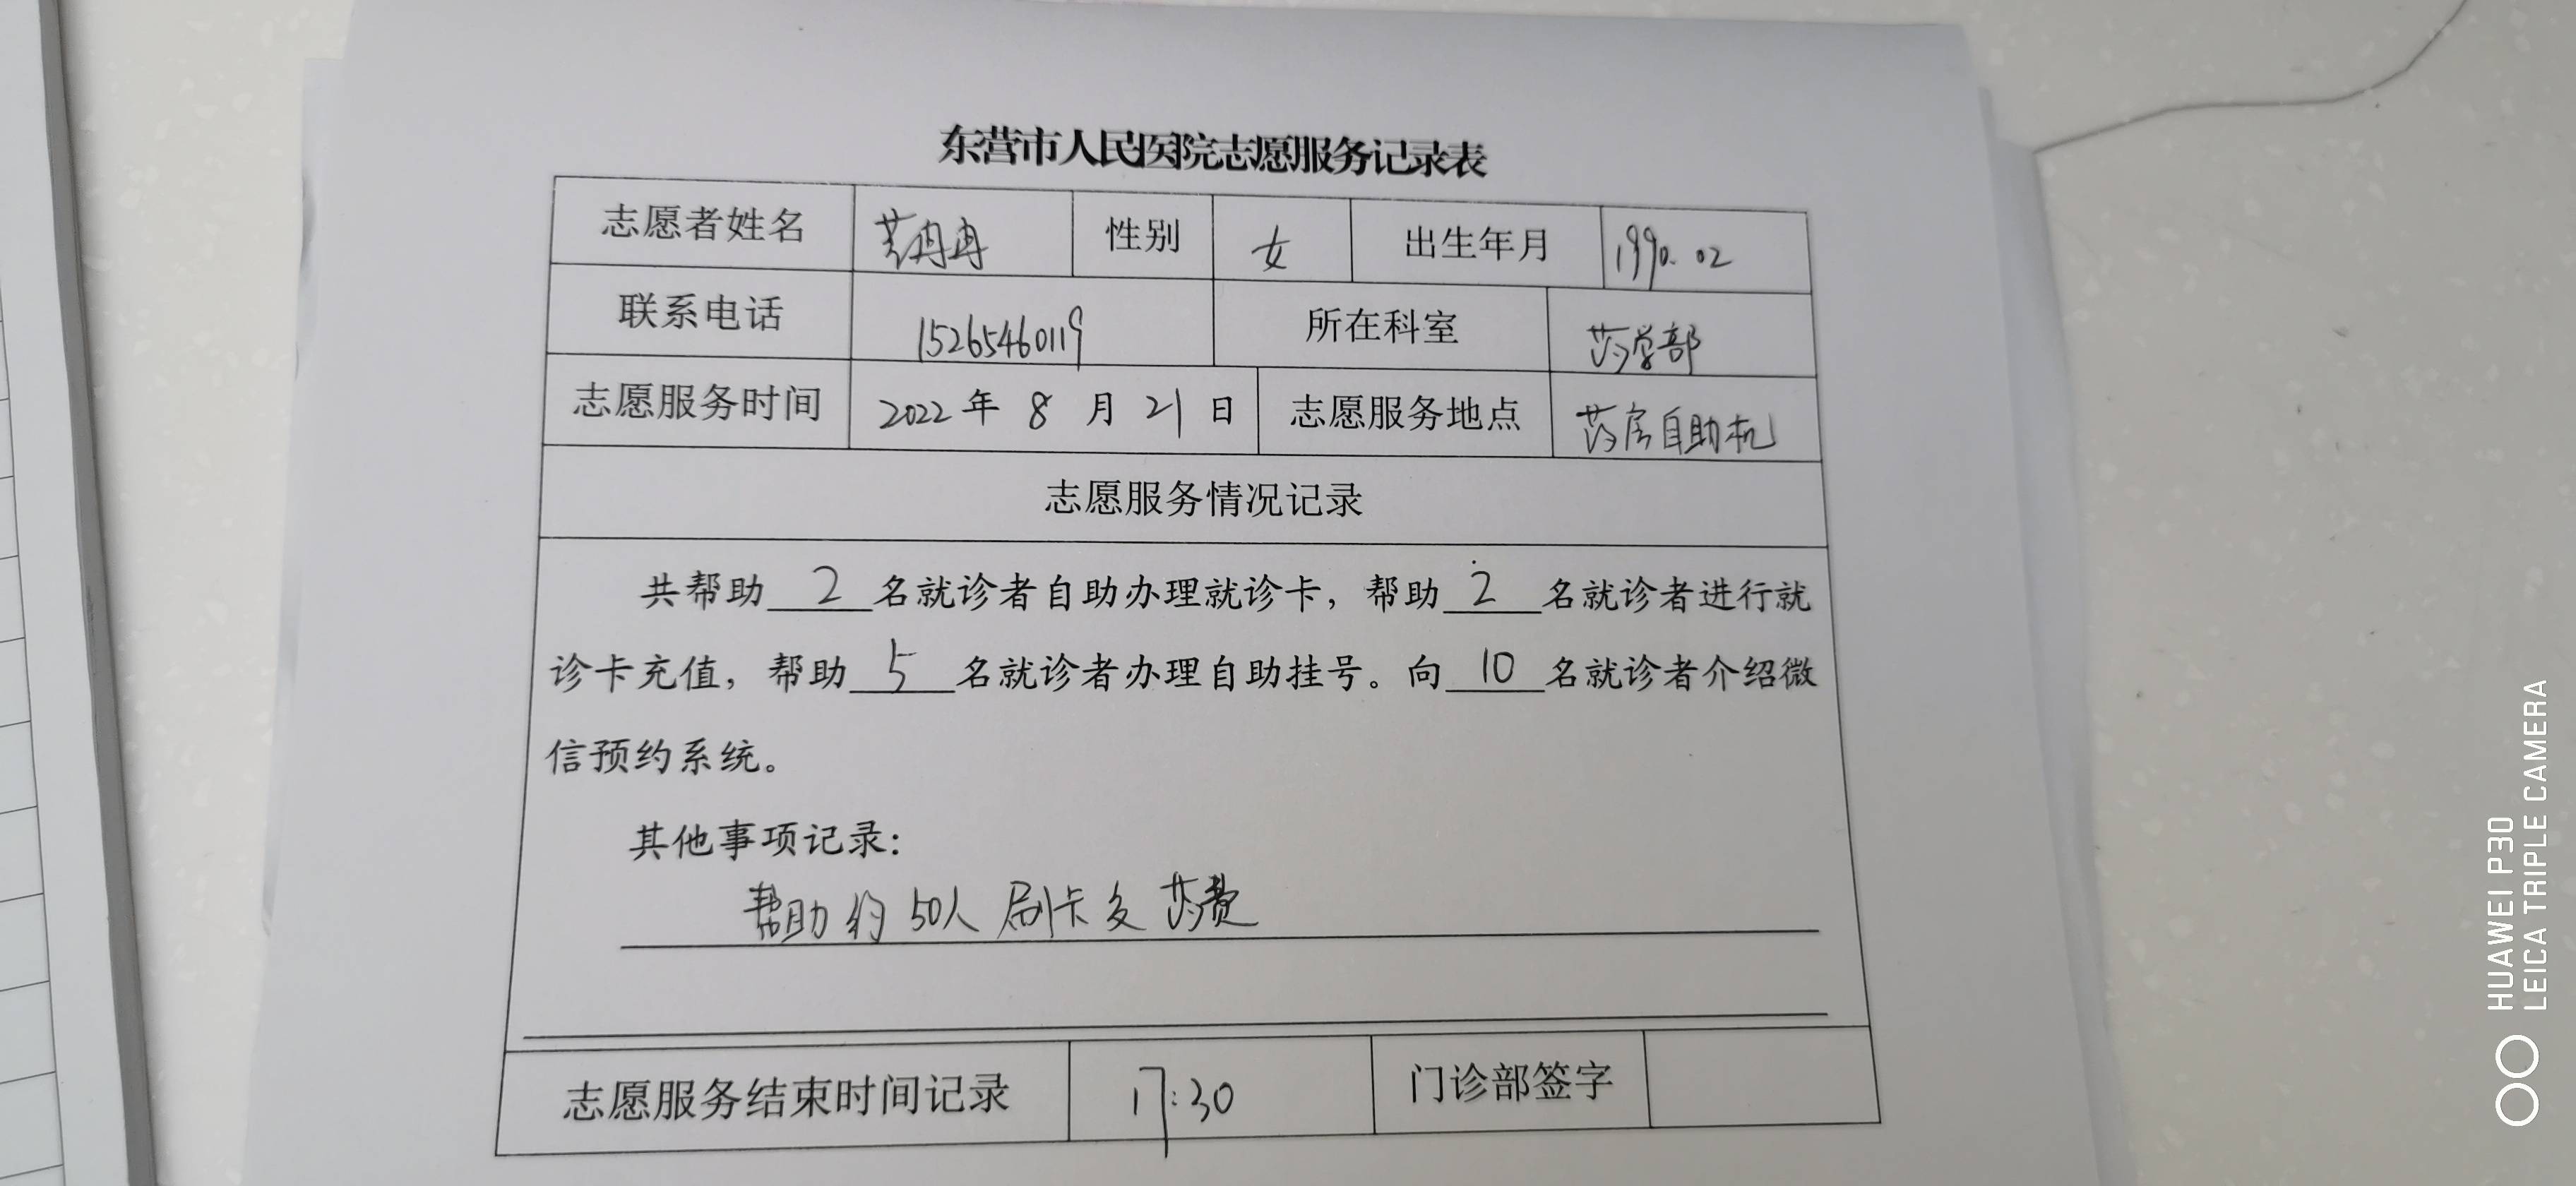 东营市人民医院志愿服务记录表
志愿者姓名 冉冉 性别 女 出生年月 1990.02
联系电话 15265460119 所在科室 药学部
志愿服务时间 2022年 8 月 21 日 志愿服务地点 药房自助机
志愿服务情况记录
共帮助 2 名就诊者自助办理就诊卡，帮助 2 名就诊者进行就
诊卡充值，帮助 5 名就诊者办理自助挂号。向 10 名就诊者介绍微
信预约系统。
其他事项记录：
帮助约50人刷卡交药费
志愿服务结束时间记录 17:30 门诊部签字
HUAWEI P30
LEICA TRIPLE CAMERA